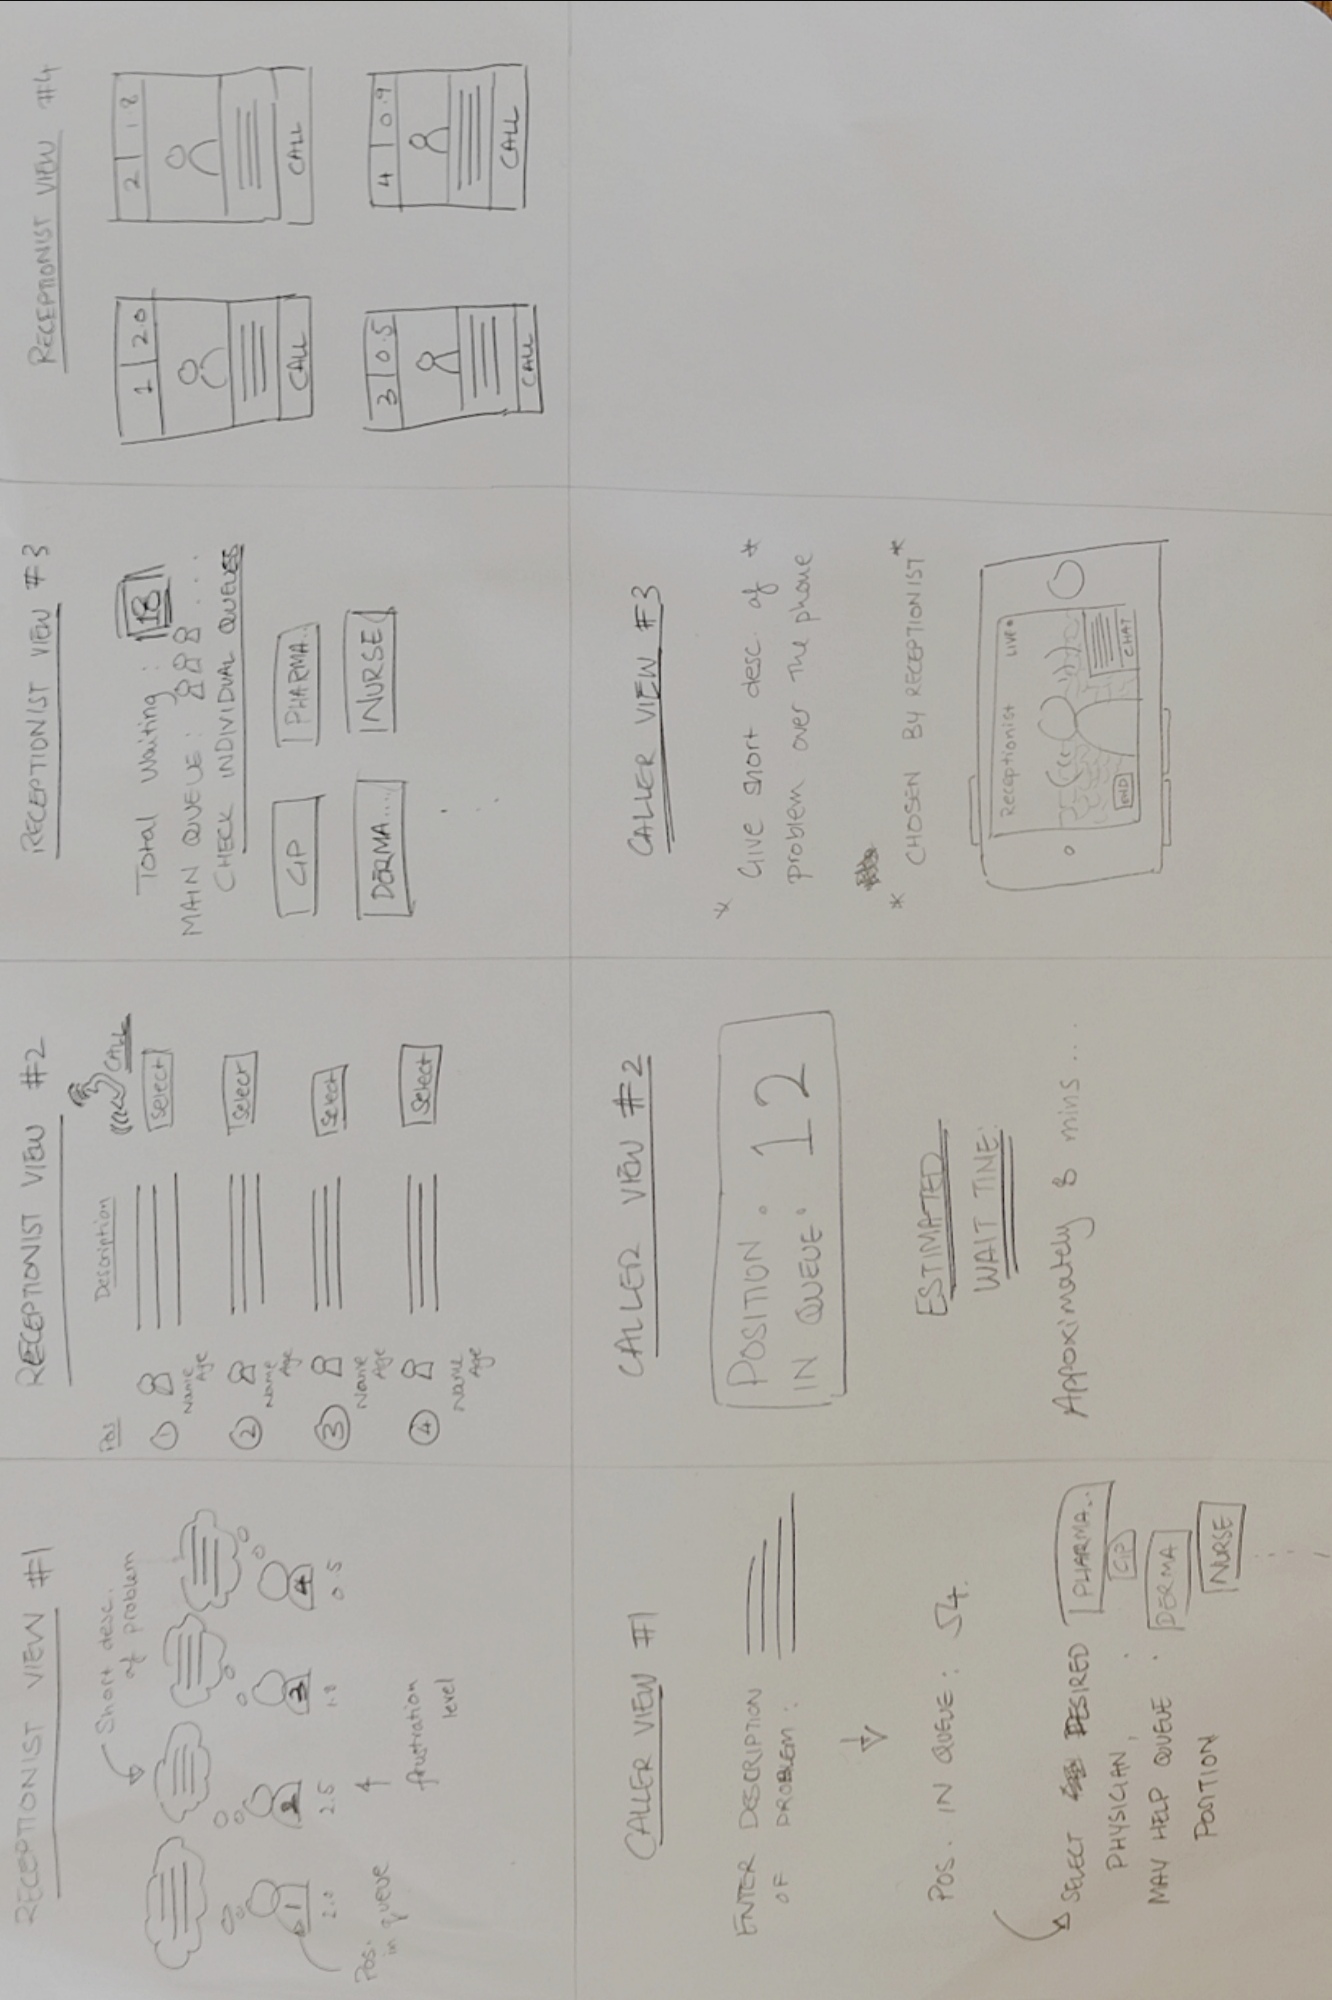 RECEPTIONIST VIEW #1
Short desc.
of problem
1
2
3
4
2.0
2.5
1.8
0.5
Pos.
in queue
frustration
level
RECEPTIONIST VIEW #2
Pos
Description
CALL
1
Name
Age
Select
2
Name
Age
Select
3
Name
Age
Select
4
Name
Age
Select
RECEPTIONIST VIEW #3
Total Waiting : 18
MAIN QUEUE : ...
CHECK INDIVIDUAL QUEUES
GP
PHARMA...
DERMA....
NURSE
RECEPTIONIST VIEW #4
1 2.0
CALL
2 1.8
CALL
3 0.5
CALL
4 0.9
CALL
CALLER VIEW #1
ENTER DESCRIPTION
OF PROBLEM :
POS. IN QUEUE : 54.
SELECT DESIRED
PHYSICIAN,
MAY HELP QUEUE
POSITION
:
PHARMA...
GP
DERMA
NURSE
CALLER VIEW #2
POSITION
IN QUEUE : 12
ESTIMATED
WAIT TIME:
Approximately 8 mins...
CALLER VIEW #3
* Give short desc. of *
problem over the phone
* CHOSEN BY RECEPTIONIST *
Receptionist
LIVE
END
CHAT